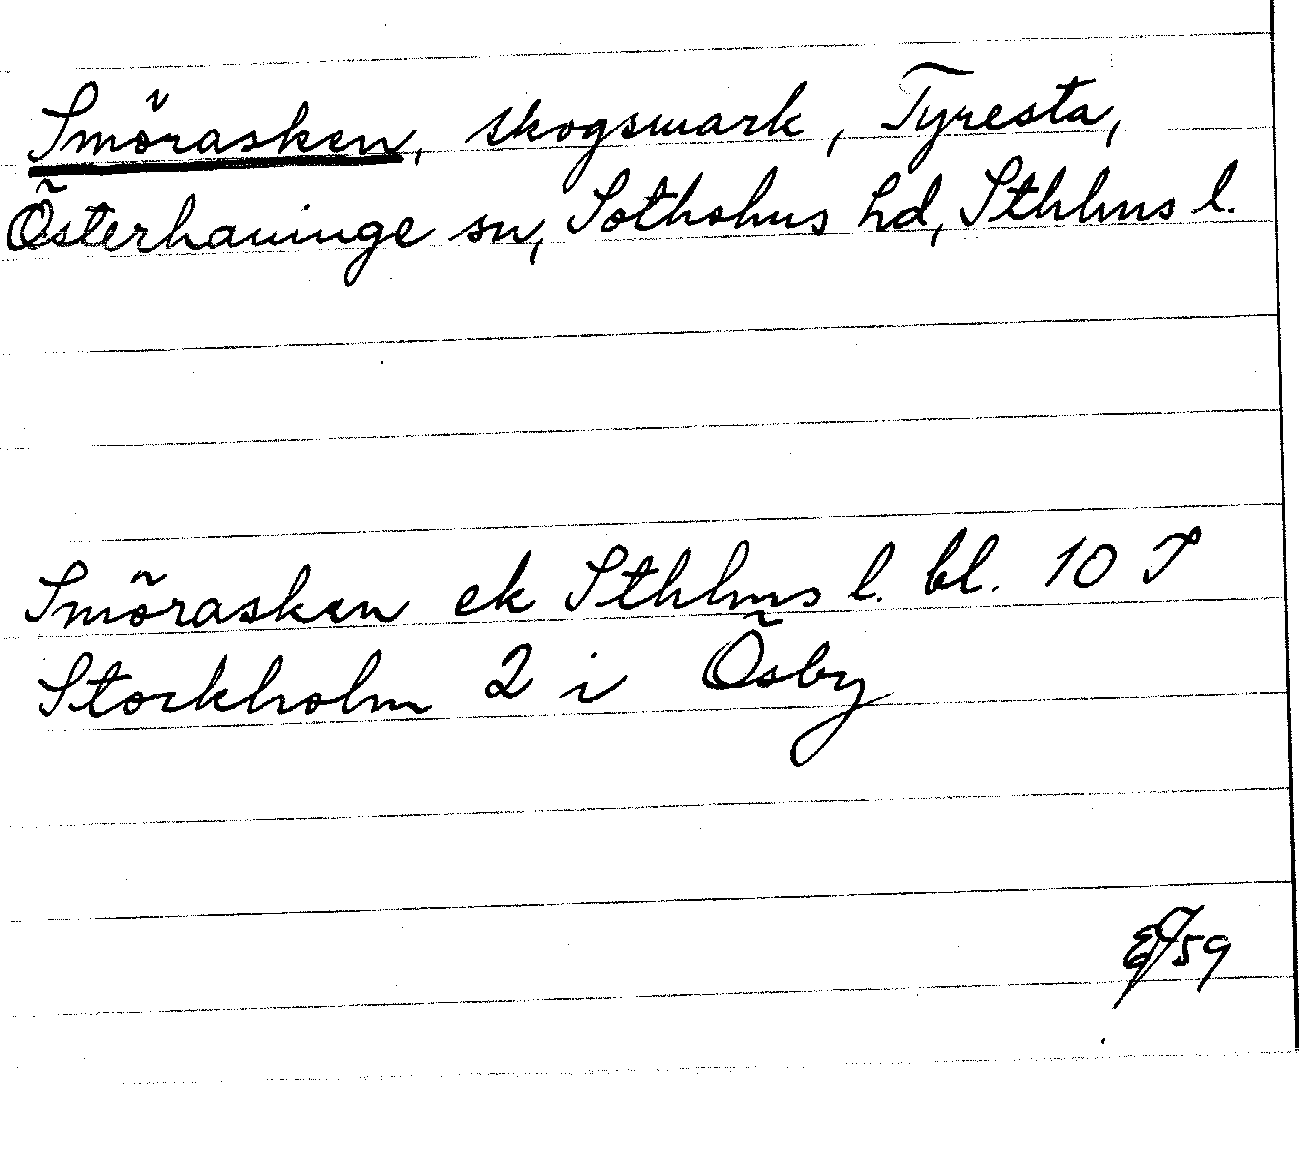 Smörasken, skogsmark, Tyresta,
Österhaninge sn, Sotholms hd, Sthlms l.
Smörasken ek Sthlms l. bl. 10 I
Stockholm 2 i Ösby